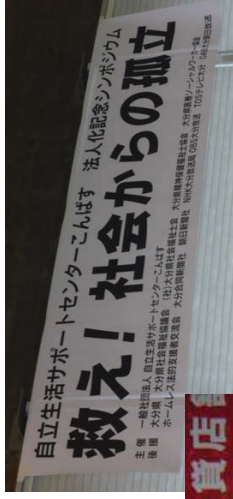 自立生活サポートセンターこんぱす　法人化記念シンポジウム
救え！社会からの孤立
主催　一般社団法人 自立生活サポートセンターこんぱす
後援　大分県　大分県社会福祉協議会　（社）大分県社会福祉士会　大分県精神保健福祉士協会　大分県医療ソーシャルワーカー協会
ホームレス法的支援者交流会　大分合同新聞社　朝日新聞社　NHK大分放送局　OBS大分放送　TOSテレビ大分　OAB大分朝日放送
貨店